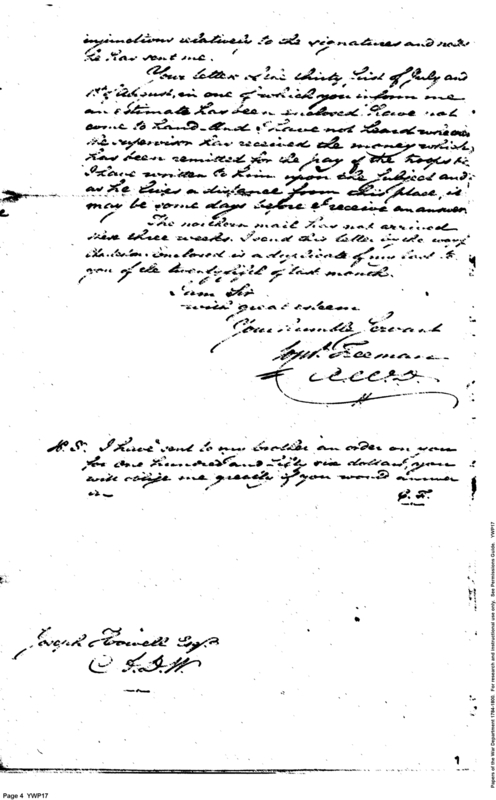 injunctions relative to the signatures and
he has sent me.
Your letters of the thirty first of July and
in one of which you inform me
an estimate has been enclosed have not
come to hand. And I have not heard whether
the supervisor has received the money which
has been remitted for the pay of the troops &c
I have written to him upon the subject and
as he lives a distance from this place, it
may be some days before I receive an answer
The northern mail has not arrived
these three weeks. I send this letter by the way
Charleston. Enclosed is a duplicate of my last to
you of the twenty eighth of last month.
I am Sir
with great esteem
Your humble Servant
Freeman
P.S. I have sent to my brother an order on you
for one hundred and fifty six dollars, you
will oblige me greatly if you would answer
it
C. F.
Joseph Howell Esqr.
1
Page 4 YWP17
Papers of the War Department 1784-1800. For research and instructional use only. See Permissions Guide. YWP17